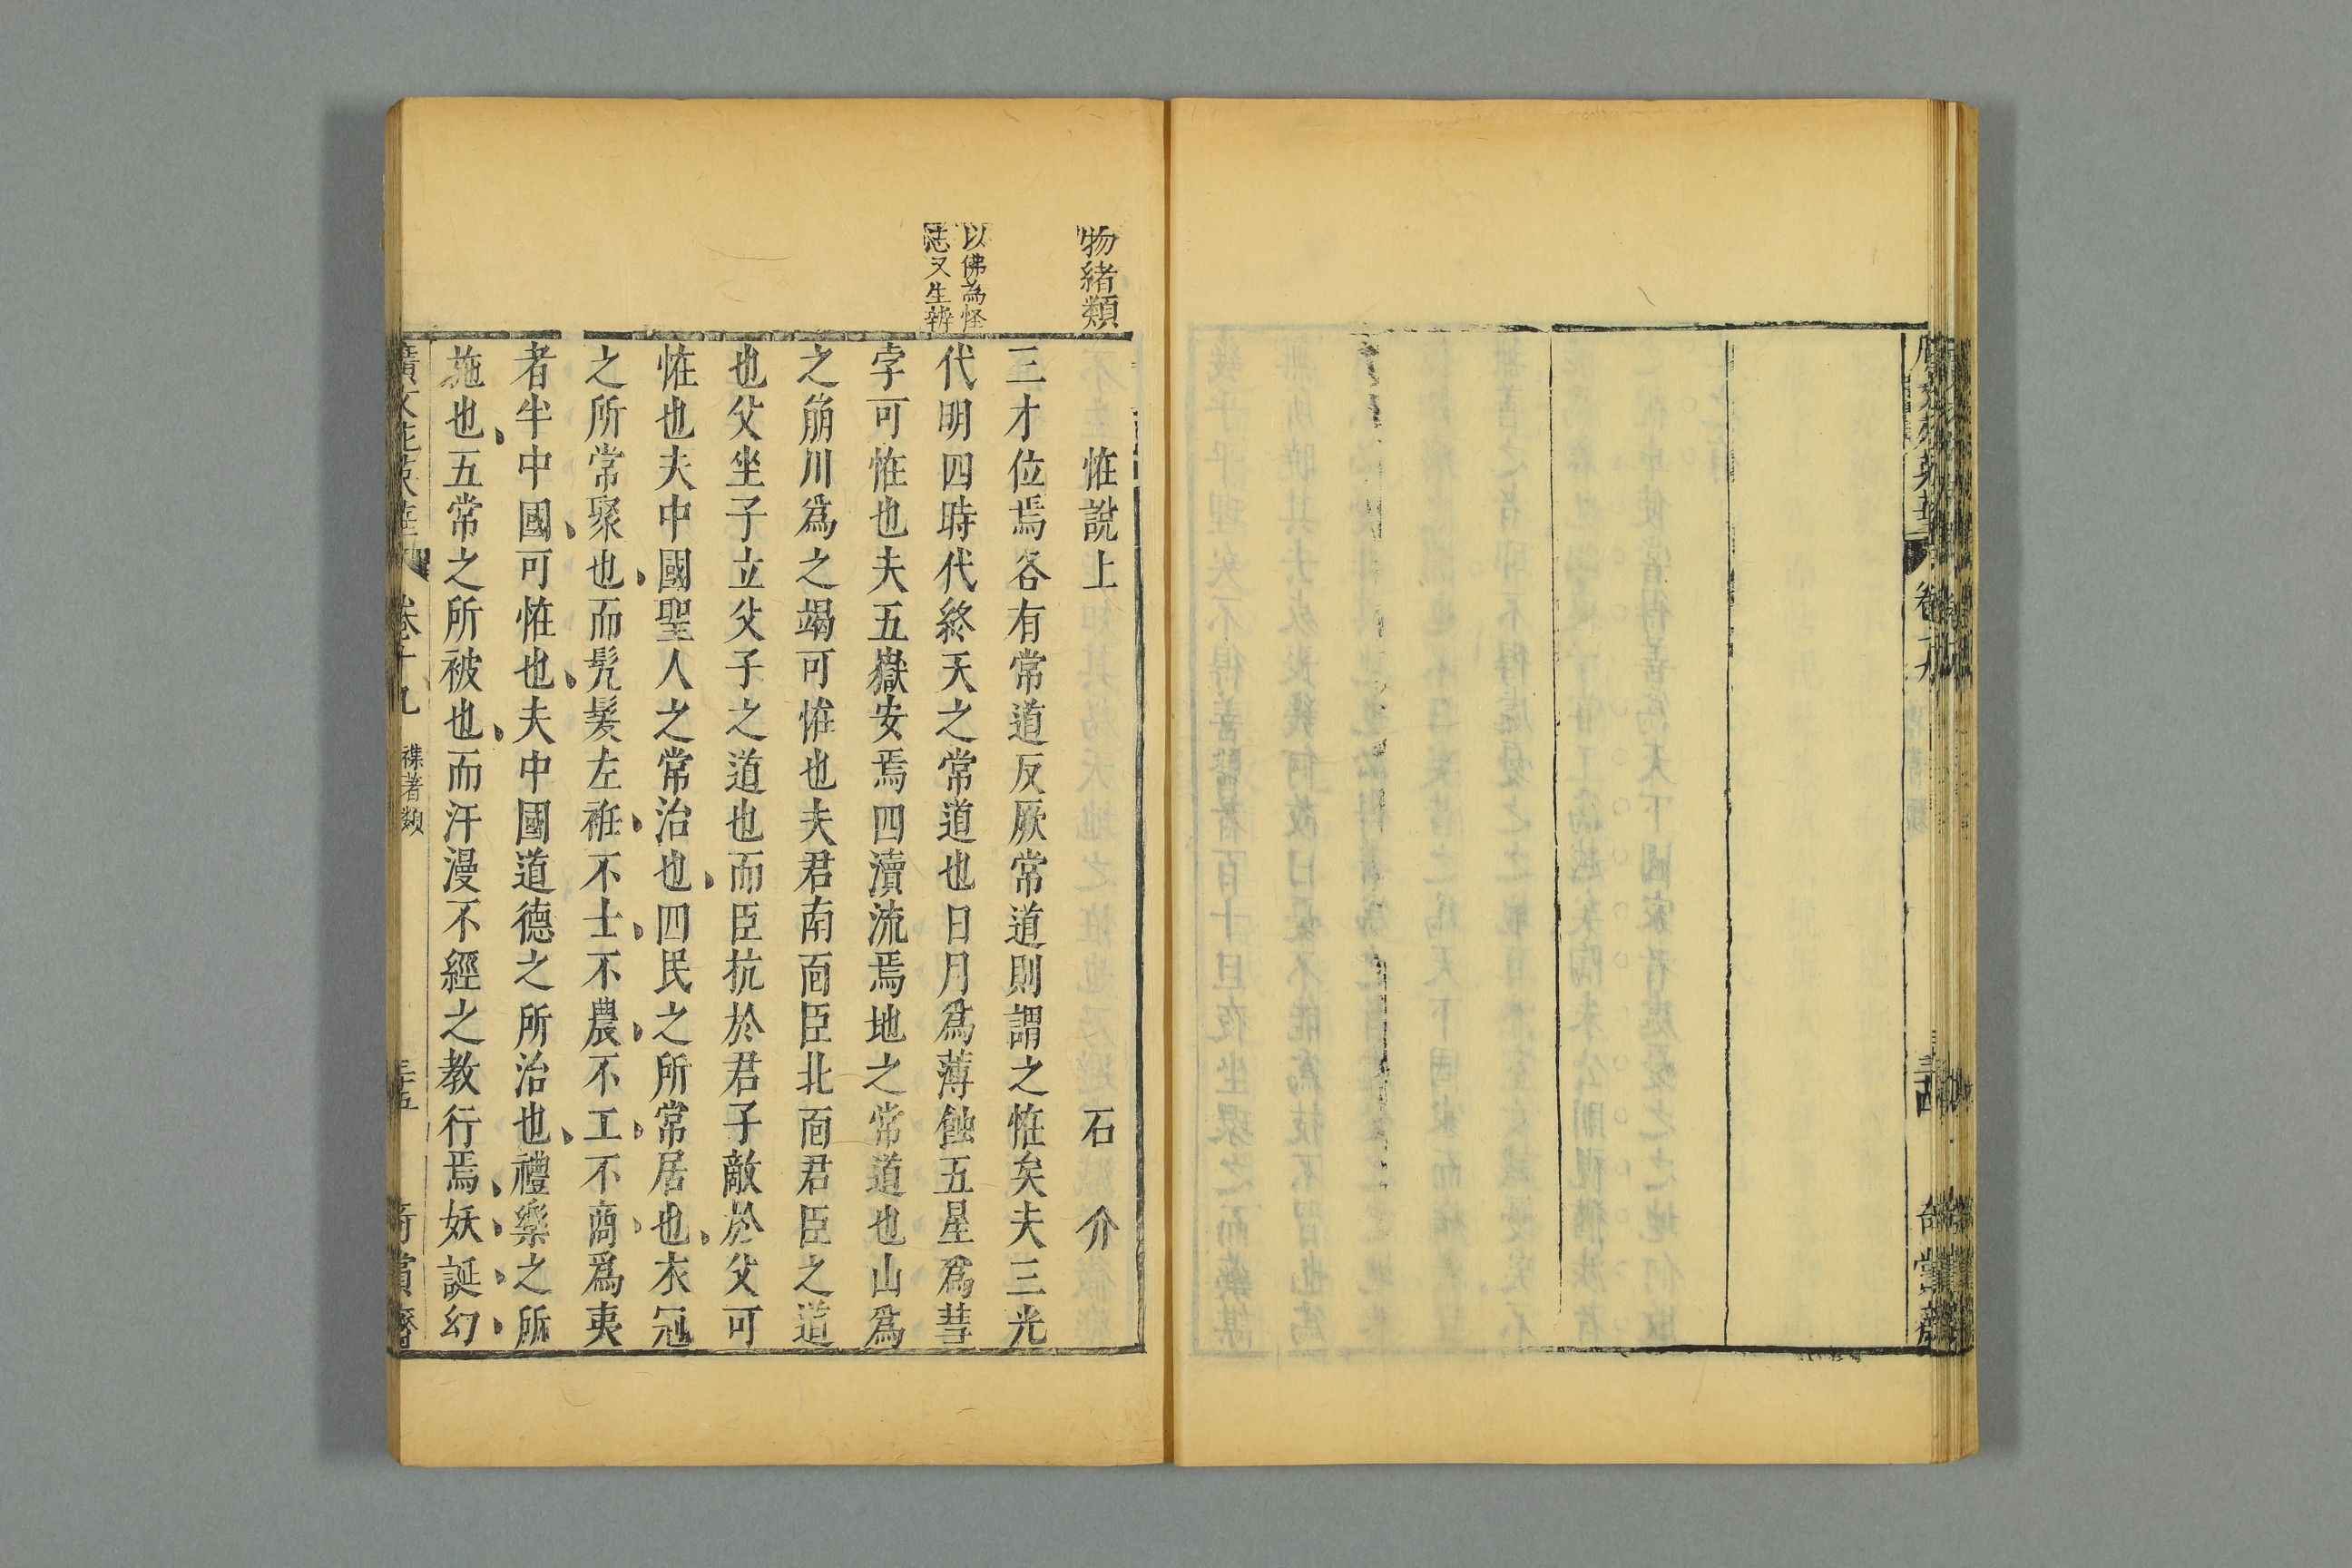 物緒類
恠說上 石介
以佛為怪
又生辨
三才位焉各有常道反厥常道則謂之恠矣夫三光
代明四時代終天之常道也日月爲薄蝕五星爲彗
孛可恠也夫五嶽安焉四瀆流焉地之常道也山爲
之崩川爲之竭可恠也夫君南面臣北面君臣之道
也父坐子立父子之道也而臣抗於君子敵於父可
恠也夫中國聖人之常治也四民之所常居也衣冠
之所常聚也而髡髮左袵不士不農不工不商爲夷
者半中國可恠也夫中國道德之所治也禮樂之所
施也五常之所被也而汗漫不經之教行焉妖誕幻
廣文苑英華 卷十九 襍著類 三十五 奇賞齋